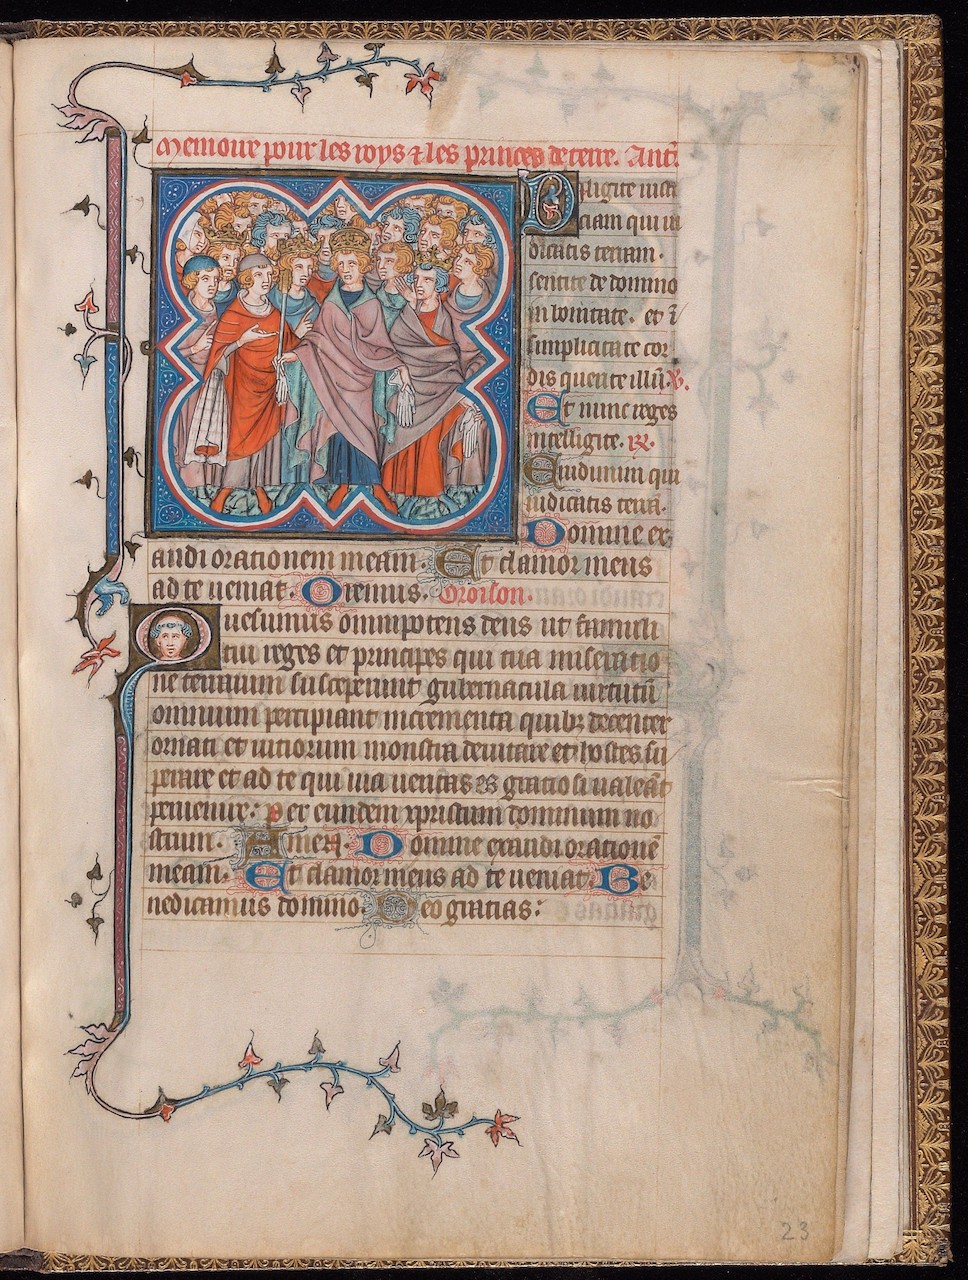 Memoire pour les roys ⁊ les princes de terre. Antᷓ.
Diligite iusti
ciam qui iu
dicatis terram.
sentite de domino
in bonitate. et ī
simplicitate cor
dis querite illū. ℣.
Et nunc reges
intelligite. ℟.
Erudimini qui
iudicatis terrā.
Domine ex
audi orationem meam. Et clamor meus
ad te ueniat. Oremus. Oroison.
Quesumus omnipotens deus ut famuli
tui reges et principes qui tua miseratio
ne terrarum susceperunt gubernacula uirtutū
omnium percipiant incrementa quibꝫ decenter
ornati et uitiorum monstra deuitare et hostes su
perare et ad te qui uia ueritas es gratiosi ualeāt
peruenire. Per eundem xpristum dominum no
strum. Amen. Domine exaudi orationē
meam. Et clamor meus ad te ueniat. Be
nedicamus domino. Deo gratias.
23